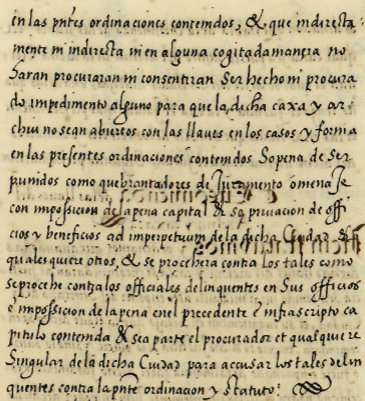 en las pntes ordinaciones contenidos, & que indirecta
mente ni indirecta ni en alguna cogitada manera no
haran procuraran ni consentiran ser hecho ni procura
do impedimento alguno para que la dicha caxa y ar
chiu no sean abiertos con las llaues en los casos y forma
en las presentes ordinaciones contenidos So pena de ser
punidos como quebrantadores de Juramento omenaje
con imposicion de la pena capital & priuacion de offi
cios y beneficios ad imperpetuum de la dicha Ciudad &
quales quiere otros, & se procehera contra los tales como
se proche contra los officiales delinquentes en sus officios
e impossicion de la pena en el precedente e infrascripto ca
pitulo contenida & sea parte el procurador et qualquiere
Singular de la dicha Ciudad para accusar los tales delin
quentes contra la pnte ordinacion y statuto: